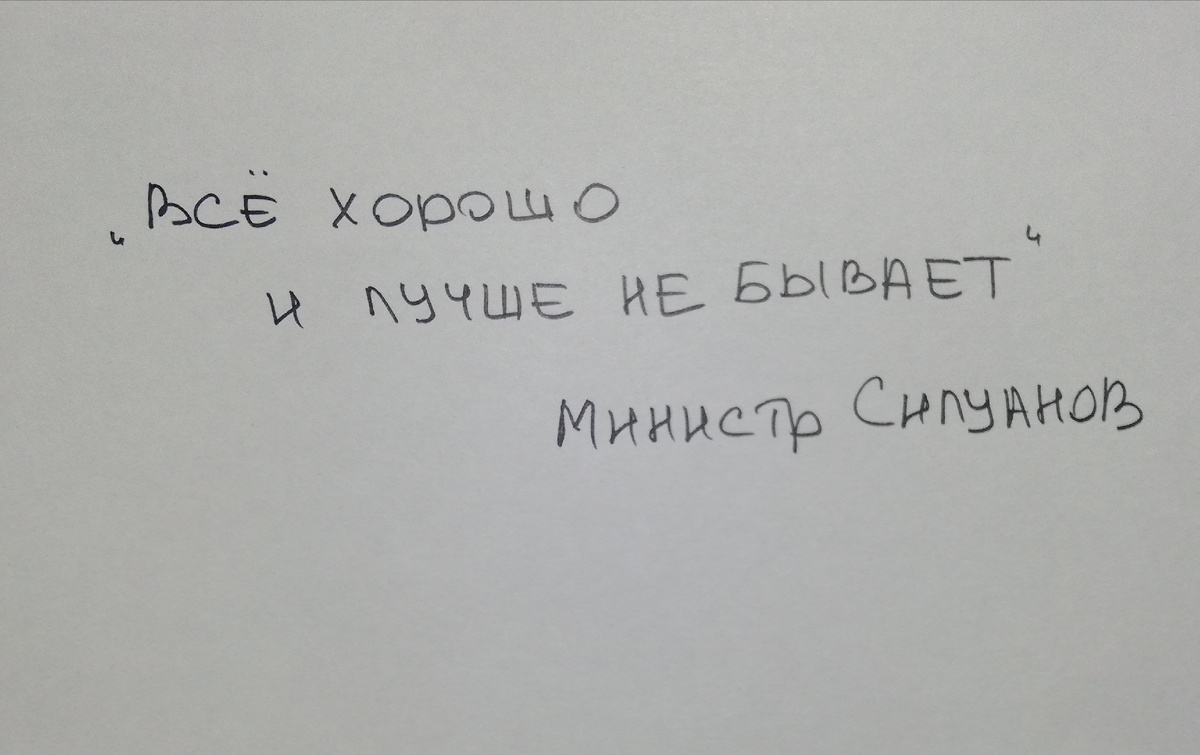 „ВСЁ ХОРОШО
И ЛУЧШЕ НЕ БЫВАЕТ“
МИНИСТР СИЛУАНОВ